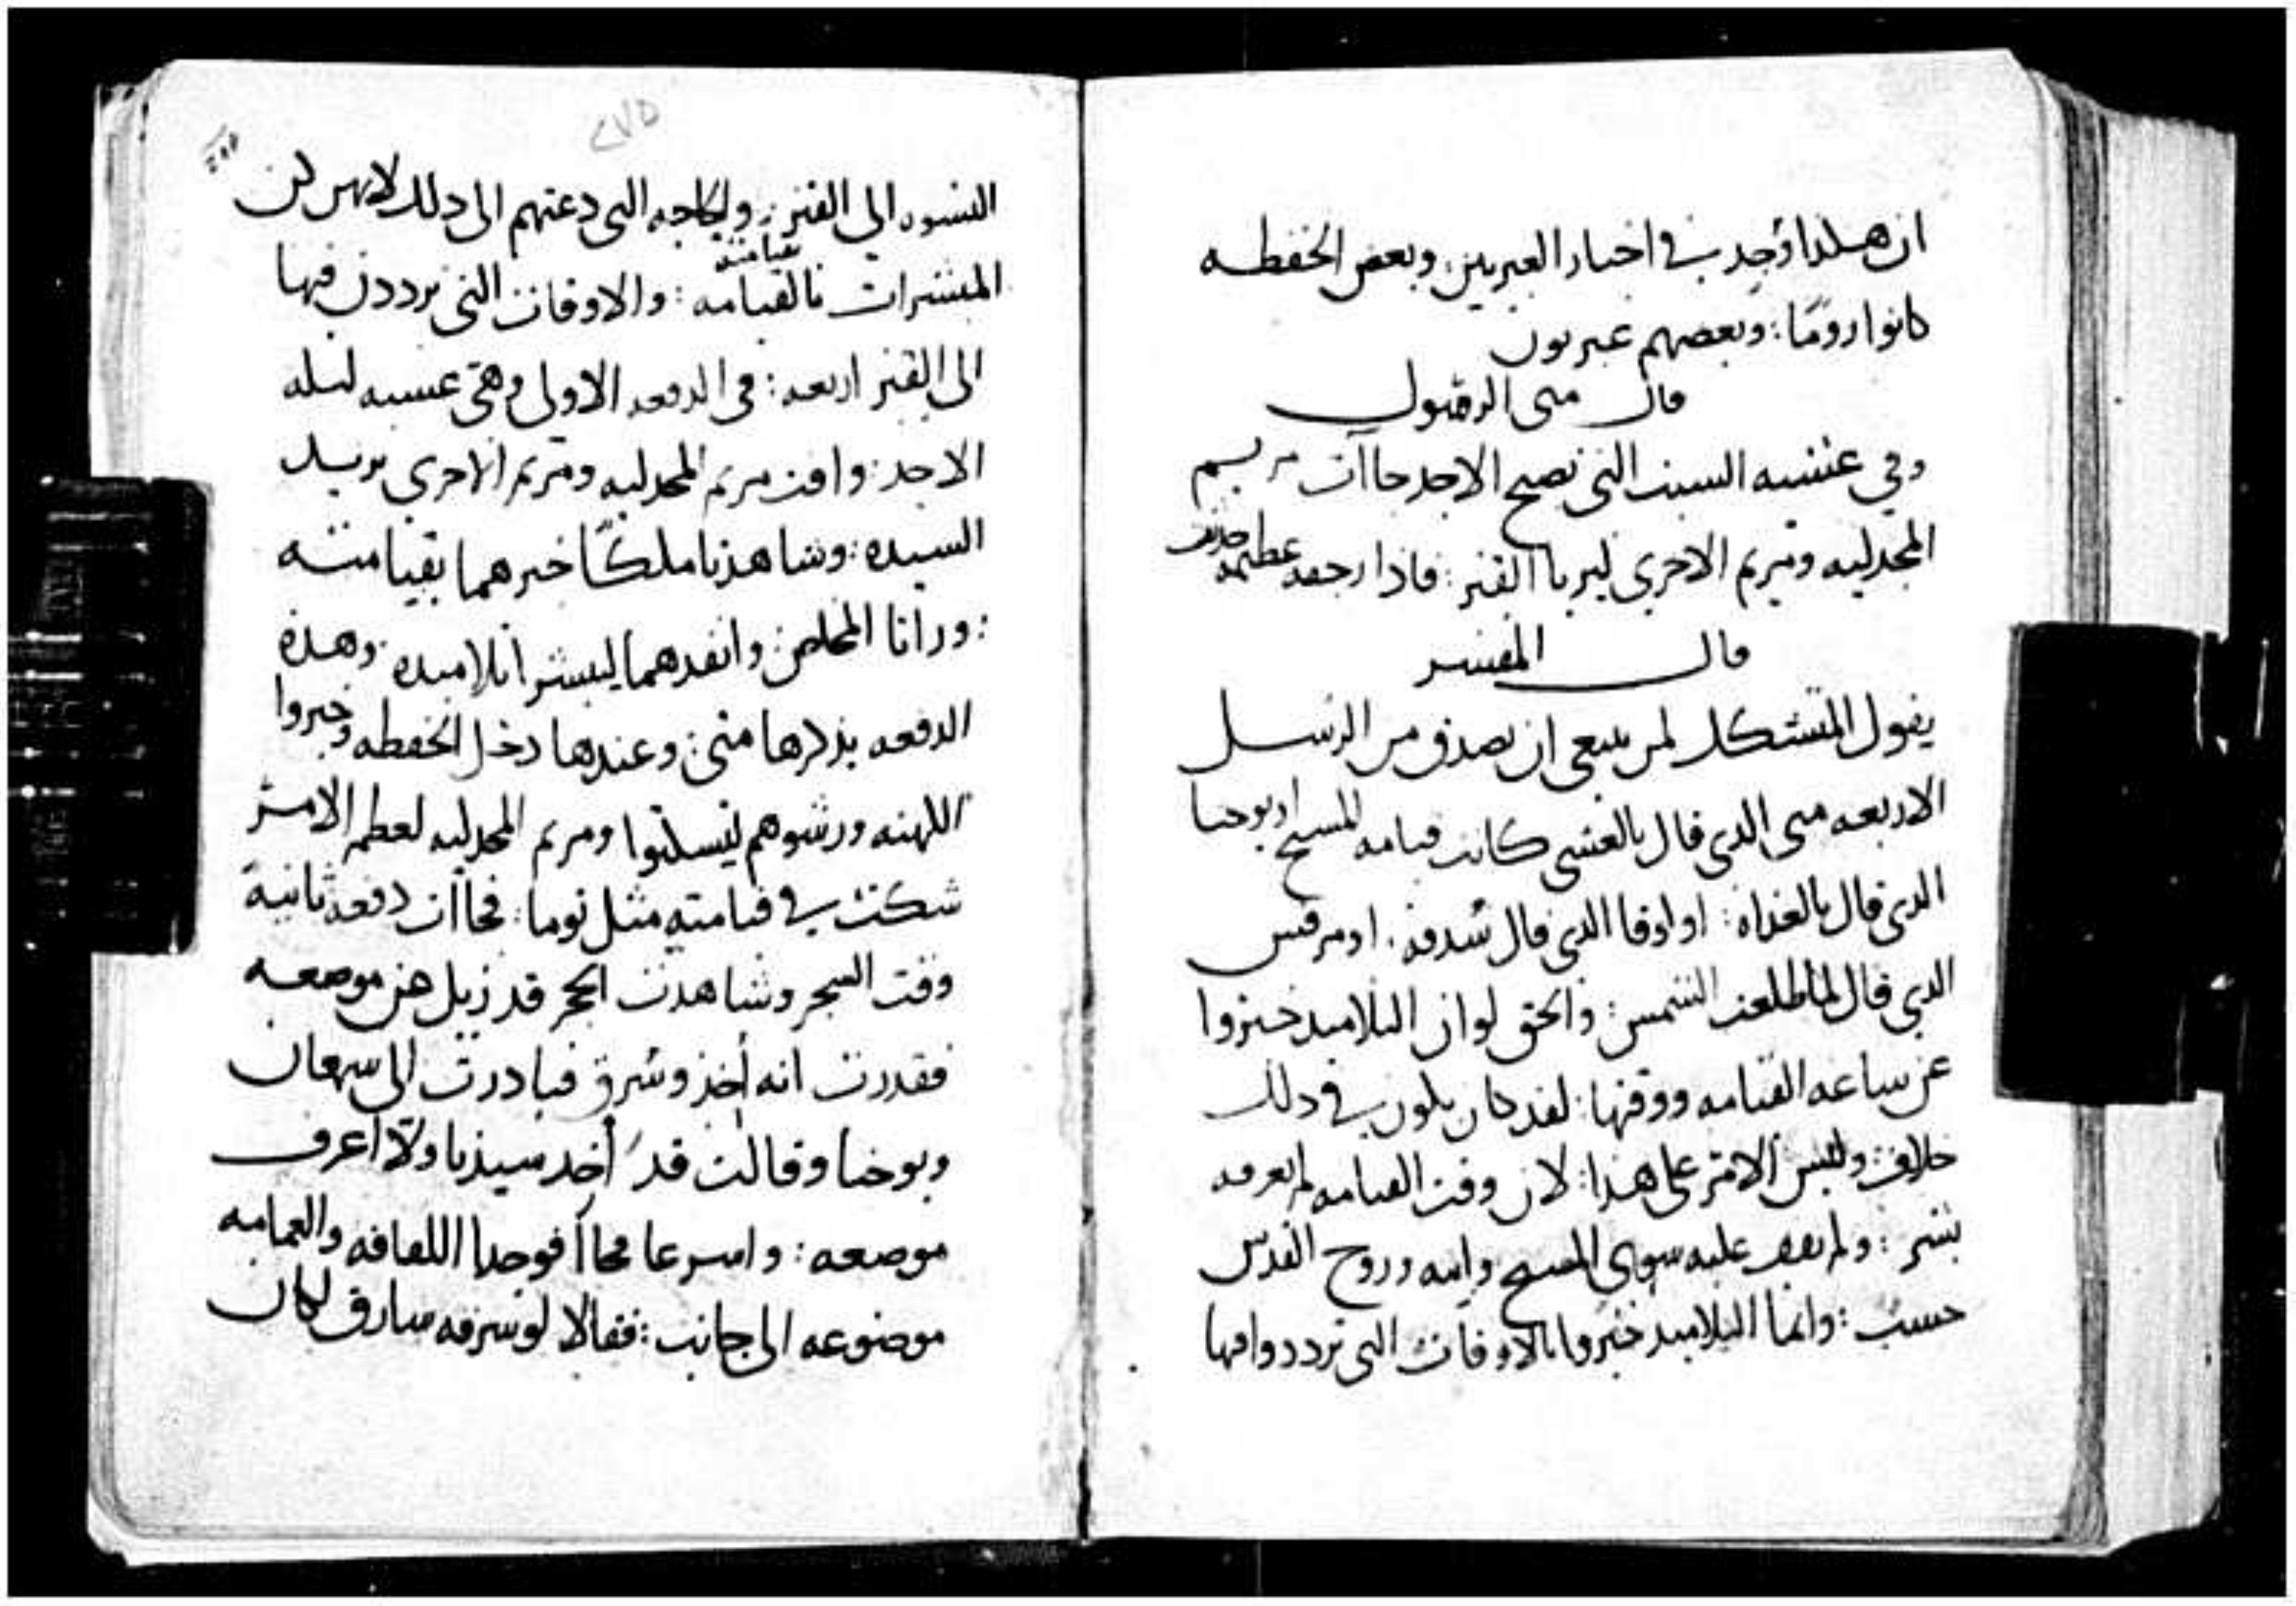 ان هكذا وجد في اخبار العبريين: وبعض الحفظه
كانوا روما: وبعضهم عبريون
قال متى الرسول
وفي عشيه السبت التي تصبح الاحد جاات مريم
المجدليه ومريم الاخرى ليريا القبر: فاذا رجفه عظيمه حدثت
قال المفسر
يقول المتشكك لمن ينبغي ان نصدق من الرسل
الاربعه متى الذي قال بالعشي كانت قيامه المسيح او يوحنا
الذي قال بالغداه: او لوقا الذي قال سدفه. او مرقس
الذي قال لما طلعت الشمس: والحق لو ان التلاميد خبروا
عن ساعه القيامه ووقتها: لقد كان يكون في دلك
خلاف: وليس الامر على هذا: لان وقت القيامه لم يعرفه
بشر: ولم يقف عليه سوى المسيح وابيه وروح القدس
حسب: وانما التلاميد خبروا بالاوقات التي ترددوا فيها
٢٧٥
النسوه الي القبر: والحاجه التي دعتهم الى دلك لانهن كن
المبشرات بالقيامه: والاوقات التي ترددن فيها
قيامته
الى القبر اربعه: في الدفعه الاولى وهي عشيه ليله
الاحد: وافت مريم المجدليه ومريم الاخرى يريد
السيده: وشاهدتا ملكًا خبرهما بقيامته
: وراتا المخلص: وانفدهما ليبشرا تلاميده: وهده
الدفعه يذكرها متى: وعندها دخل الحفظه وخبروا
الكهنه ورشوهم ليسكتوا ومريم المجدليه لعظم الامر
شكت في قيامته مثل توما: فجاات دفعه ثانية
وقت السحر وشاهدت الحجر قد زيل عن موضعه
فقدرت انه أخذ وسُرق فبادرت الى سمعان
ويوحنا وقالت قد أخد سيدنا ولا اعرف
موضعه: واسرعا فجاآ فوجدا اللفافه والعمامه
موضوعه الى جانب: فقالا لو سرقه سارق لكان